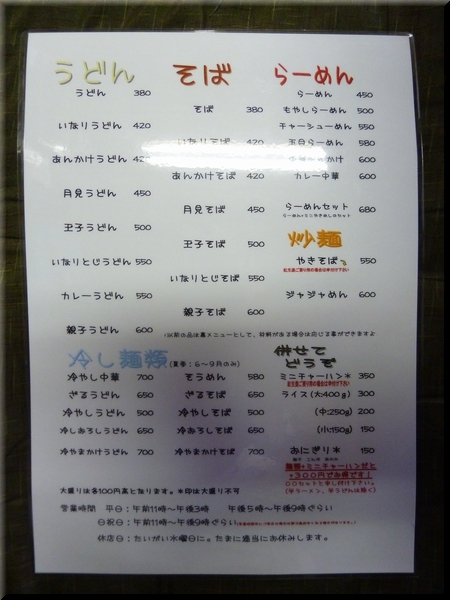 うどん そば らーめん
うどん 380
いなりうどん 420
あんかけうどん 42
月見うどん 450
玉子うどん 500
いなりとじうどん 550
カレーうどん 550
親子うどん 600
そば 380
いなりそば 420
あんかけそば 420
月見そば 450
玉子そば 500
いなりとじそば 550
親子そば 600
らーめん 450
もやしらーめん 500
チャーシューめん 550
五目らーめん 580
600
カレー中華 600
らーめんセット 680
炒麺
やきそば 550
ジャジャめん 600
冷し麺類 (夏季：6〜9月のみ)
冷やし中華 700
ざるうどん 650
冷やしうどん 500
冷しおろしうどん 650
冷やまかけうどん 700
そうめん 580
ざるそば 650
冷やしそば 500
冷おろしそば 650
冷やまかけそば 700
併せて
どうぞ
ミニチャーハン＊ 350
ライス(大:400g) 300
(中:250g) 200
(小:150g) 150
おにぎり＊ 150
麺類+ミニチャーハンだと
大盛りは各100円高となります。＊印は大盛り不可
営業時間 平日：午前11時〜午後3時 午後5時〜午後9時ぐらい
日祝日：午前11時〜午後9時ぐらい
休店日：たいがい水曜日に。たまに適当にお休みします。